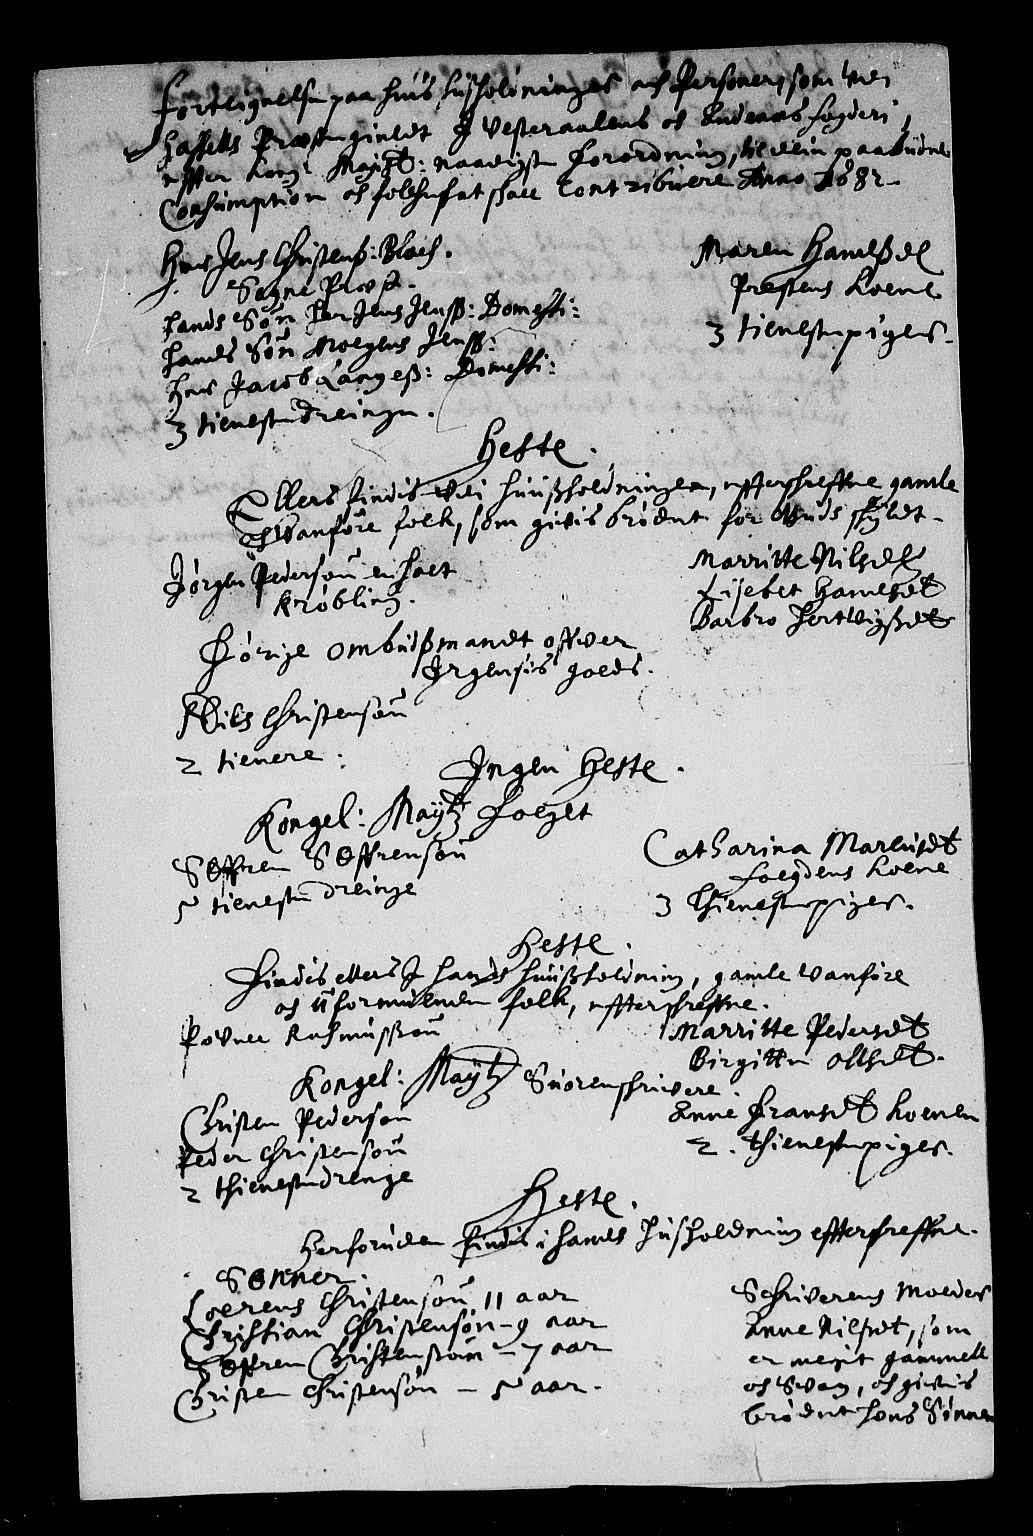 Fortegnelse paa huis hußholdninger och Personer, som udi
Hassells Præstegieldt J Vesteraalens oc Andenes fogderi,
effter Kongl: Mayst: naadigste forordning, til den paabudne
Consumption oc folcheskat skall Contribuere Anno 1682.
Her Jens Christenß: Bloch.
Sogne Præst.
Hands Søn Her Jens Jenß: Domesti:
Hands Søn Mogens Jenß:
Her Jacob Langeß: Domesti:
3 tienestedreinge.
Maren Hansßd
Prestens Koene
3 tienestepiger.
Heste.
Ellers findis udi huußholdningen, effterschreffne gamle
oc Vanføre folk, som givis brødet for Guds skyldt.
Jørgen Pedersøn en halt
Krøbling.
Marritte Nilsd
Lisebet Hansdt
Barbro Hertvigßdt
Dørige Ombudßmandt offver
Jrgensis goeds.
Nils Christensøn
2 tienere.
Jngen Heste.
Kongel: Maytz Foeget
Søffren Søffrensøn
5 tieneste dreinge
Catharina Marcusdt
foegdens Koene
3 Thienestepiger.
Heste.
Findis ellers J hands huußholdning, gamle vanføre
oc uformuende folk, effterschreffne.
Povel Rasmussøn
Marritte Pedersdt
Birgitte Olsdt.
Kongel: Maytz Suorenschrivere.
Christen Pedersøn
Peder Christensøn
2 thienestedrenge
Anne Fransdt Koenen
2. thienestepiger.
Heste.
Herforuden findis i hands Husholdning effterschreffne.
Sønner.
Loerens Christensøn 11 aar
Christian Christensøn - 9 aar
Søffren Christensøn - 7 aar
Christen Christensøn - 5 aar.
Schriverens Moeder
Anne Nilsdt, som
er megit gammell
oc Svag, oc givis
brødet hons Sønnen